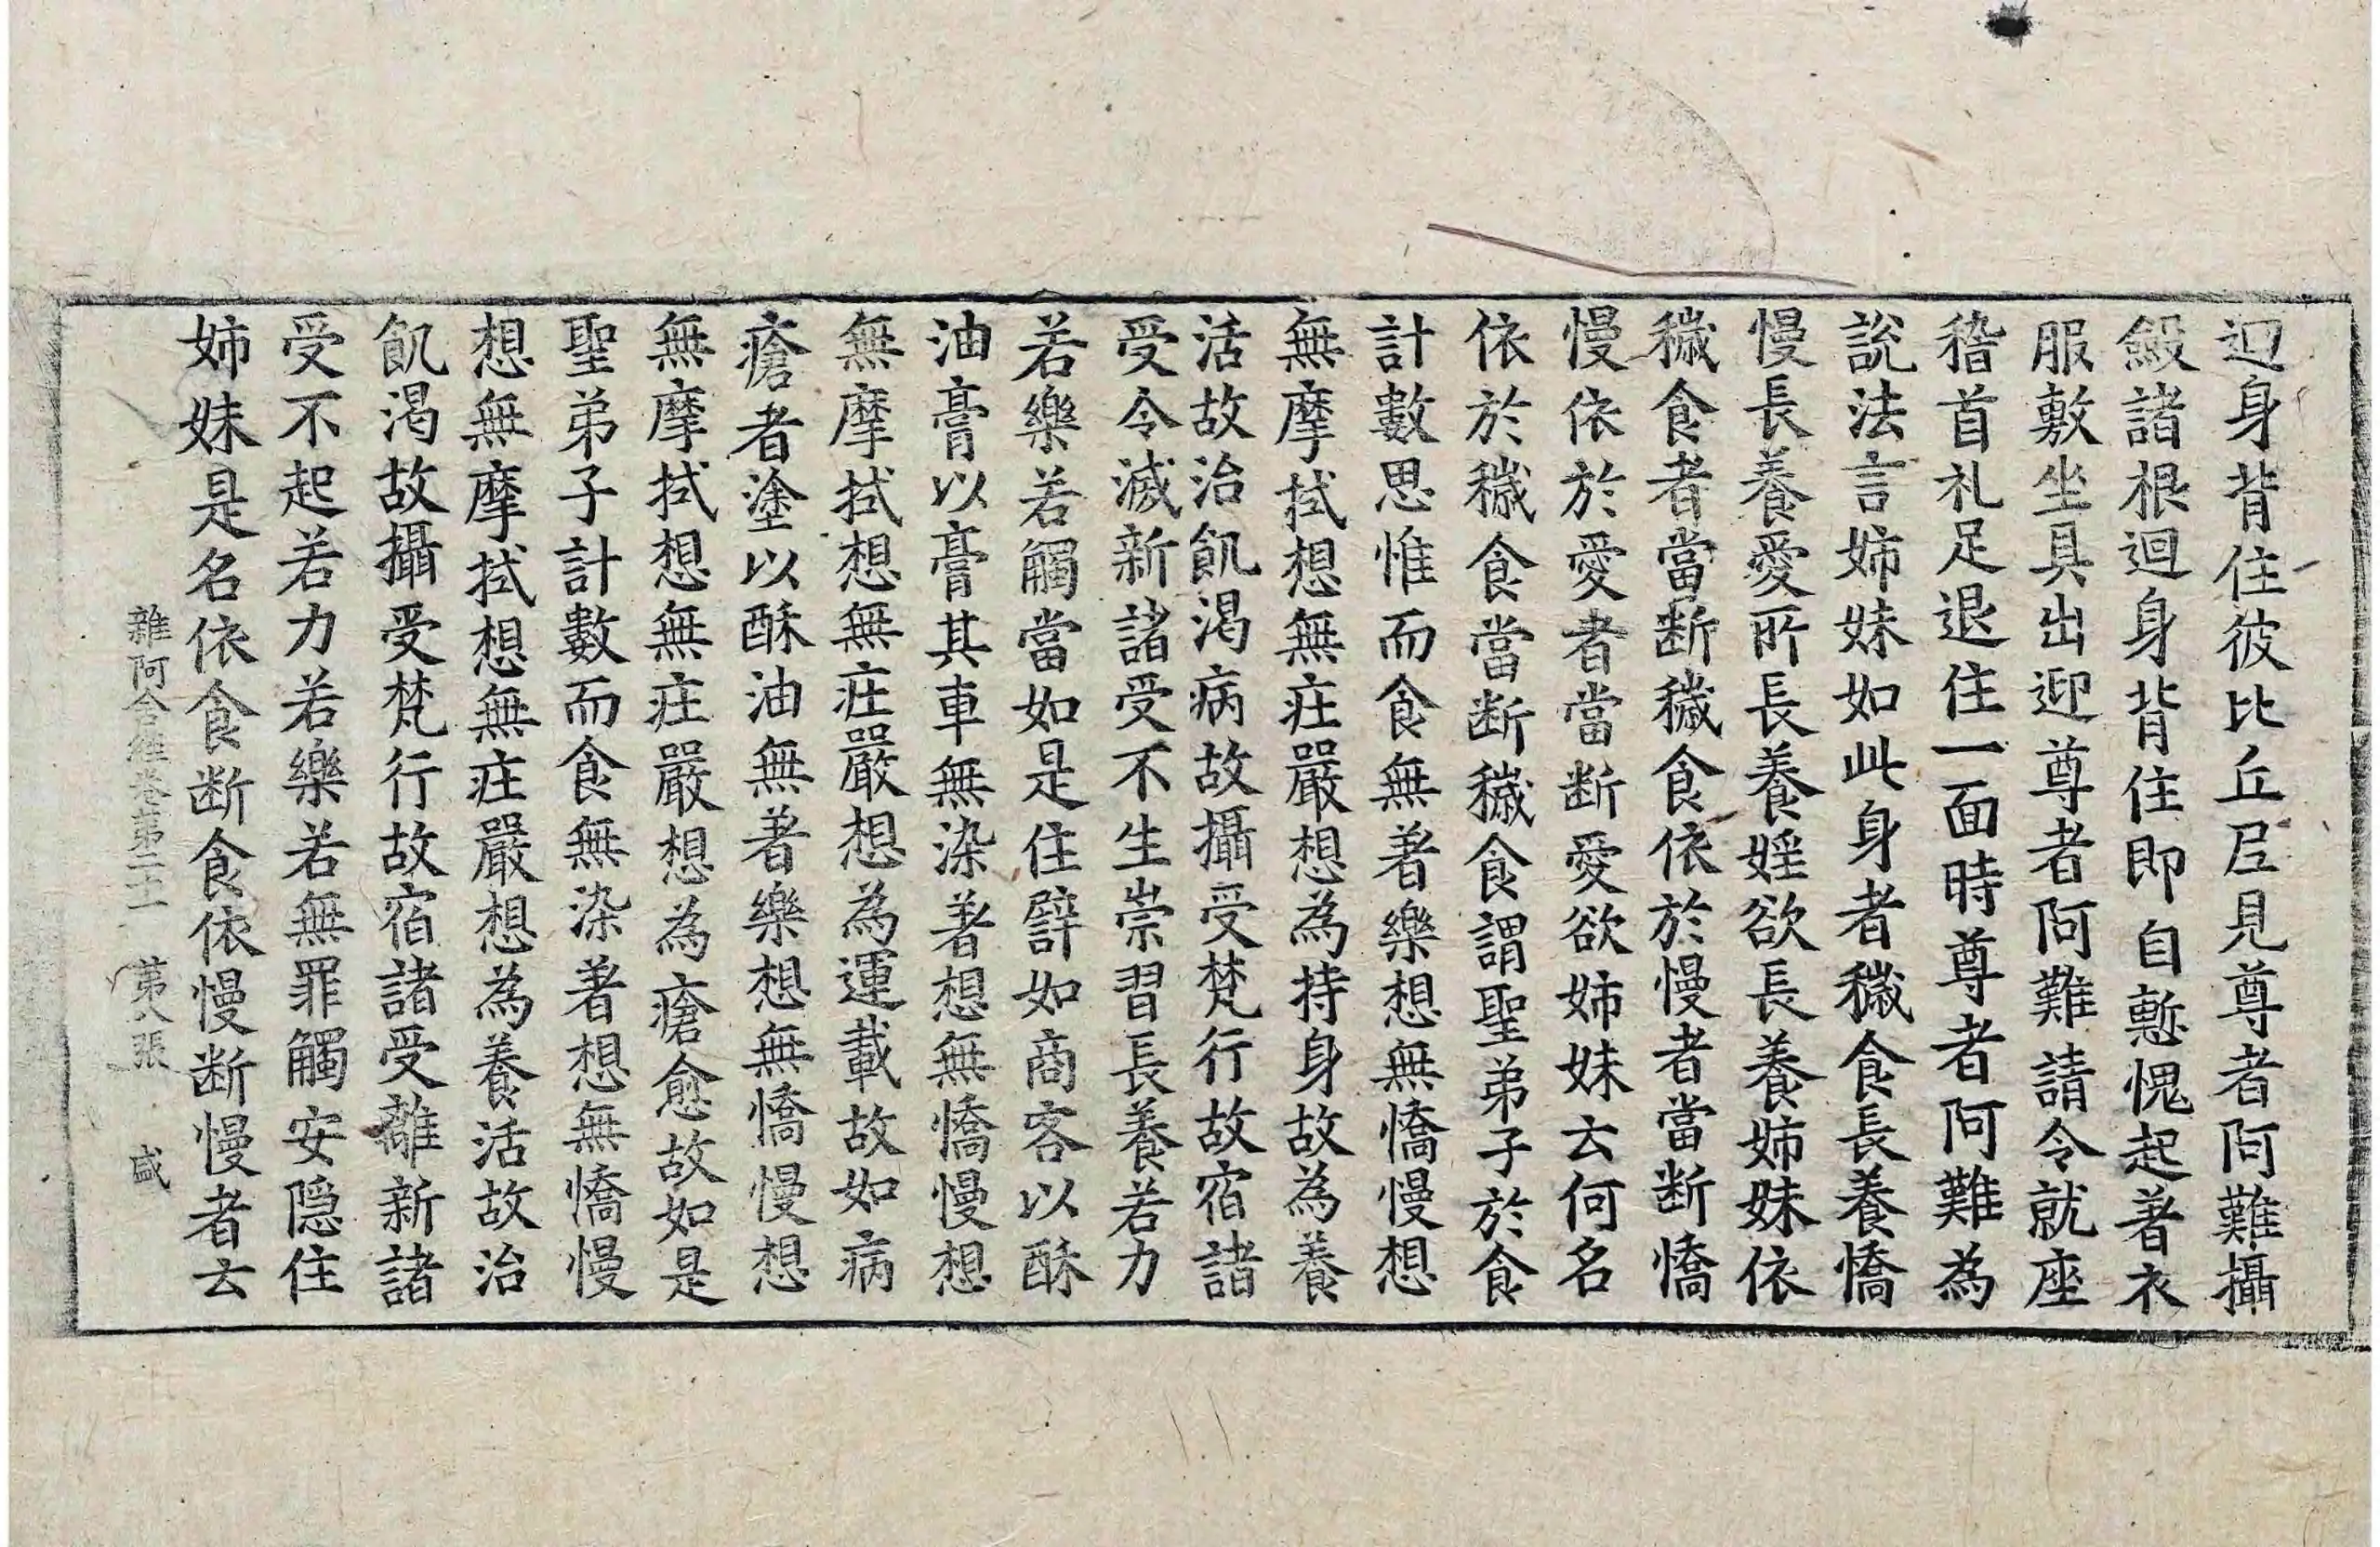 迴身背住彼比丘尼見尊者阿難攝
斂諸根迴身背住即自慙愧起著衣
服敷坐具出迎尊者阿難請令就座
稽首礼足退住一面時尊者阿難為
說法言姉妹如此身者穢食長養憍
慢長養愛所長養婬欲長養姉妹依
穢食者當断穢食依於慢者當断憍
慢依於愛者當断愛欲姉妹云何名
依於穢食當断穢食謂聖弟子於食
計數思惟而食無著樂想無憍慢想
無摩拭想無庄嚴想為持身故為養
活故治飢渴病故攝受梵行故宿諸
受令滅新諸受不生崇習長養若力
若樂若觸當如是住譬如商客以酥
油膏以膏其車無染著想無憍慢想
無摩拭想無庄嚴想為運載故如病
瘡者塗以酥油無著樂想無憍慢想
無摩拭想無庄嚴想為瘡愈故如是
聖弟子計數而食無染著想無憍慢
想無摩拭想無庄嚴想為養活故治
飢渴故攝受梵行故宿諸受離新諸
受不起若力若樂若無罪觸安隠住
姉妹是名依食断食依慢断慢者云
雜阿含經卷第二十一 第八張 盛